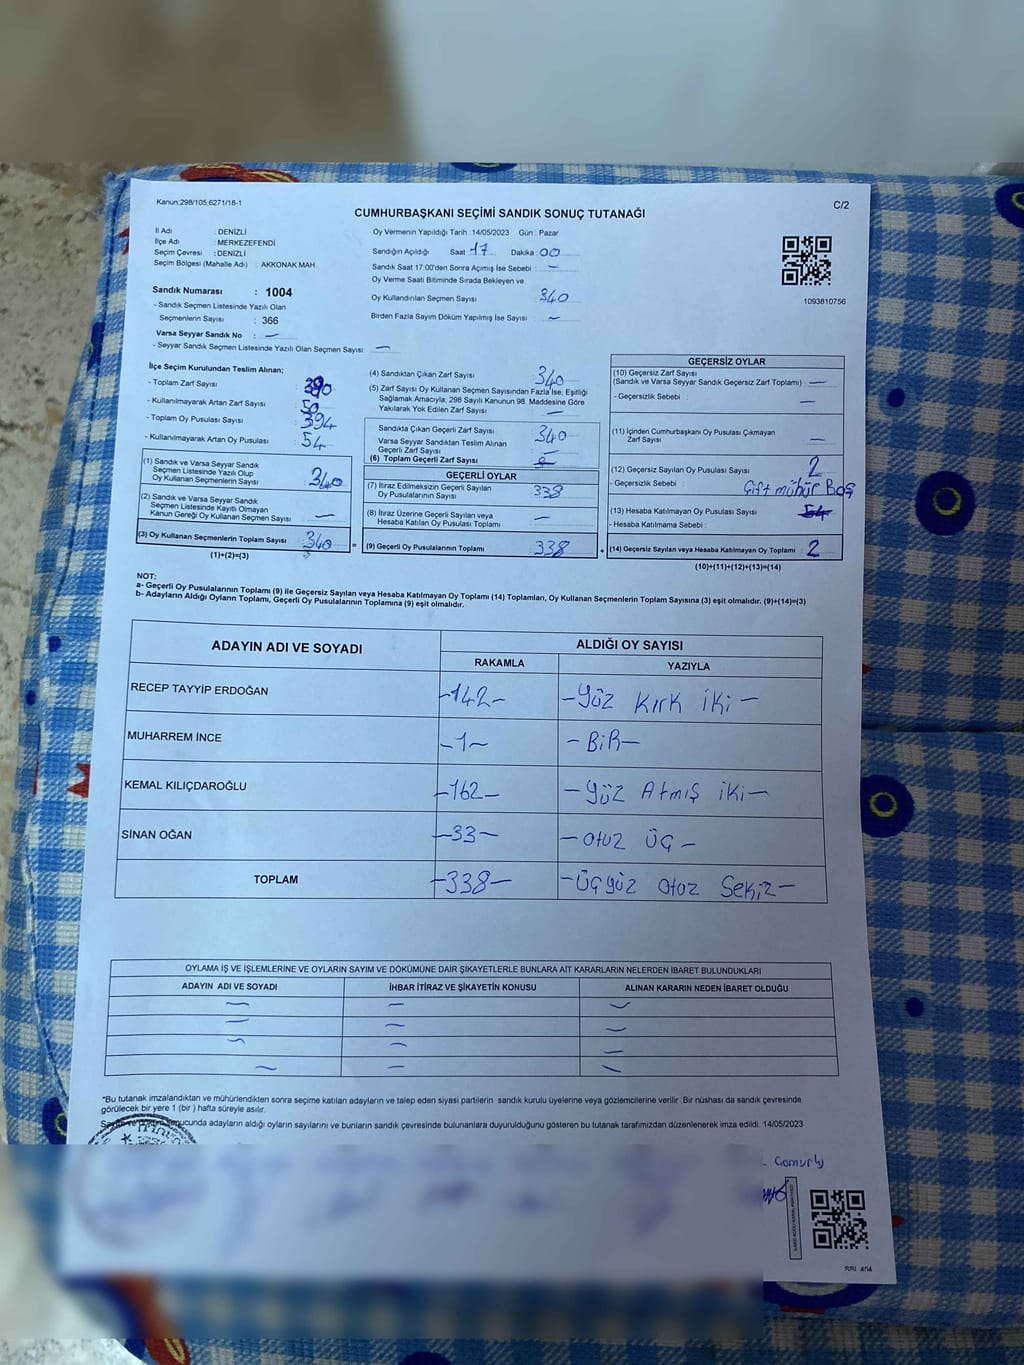 Kanun:298/105;6271/18-1
C/2
CUMHURBAŞKANI SEÇİMİ SANDIK SONUÇ TUTANAĞI
İl Adı : DENİZLİ
İlçe Adı : MERKEZEFENDİ
Seçim Çevresi : DENİZLİ
Seçim Bölgesi (Mahalle Adı) : AKKONAK MAH.
Sandık Numarası : 1004
- Sandık Seçmen Listesinde Yazılı Olan
Seçmenlerin Sayısı : 366
Varsa Seyyar Sandık No : —
- Seyyar Sandık Seçmen Listesinde Yazılı Olan Seçmen Sayısı : —
Oy Vermenin Yapıldığı Tarih : 14/05/2023 Gün : Pazar
Sandığın Açıldığı Saat 17 Dakika 00
Sandık Saat 17.00'den Sonra Açımış İse Sebebi : —
Oy Verme Saati Bitiminde Sırada Bekleyen ve
Oy Kullandırılan Seçmen Sayısı : 340
Birden Fazla Sayım Döküm Yapılmış İse Sayısı : —
1093810756
İlçe Seçim Kurulundan Teslim Alınan;
- Toplam Zarf Sayısı : 390
- Kullanılmayarak Artan Zarf Sayısı : 50
- Toplam Oy Pusulası Sayısı : 394
- Kullanılmayarak Artan Oy Pusulası : 54
(1) Sandık ve Varsa Seyyar Sandık
Seçmen Listesinde Yazılı Olup
Oy Kullanan Seçmenlerin Sayısı : 340
(2) Sandık ve Varsa Seyyar Sandık
Seçmen Listesinde Kayıtlı Olmayan
Kanun Gereği Oy Kullanan Seçmen Sayısı : —
(3) Oy Kullanan Seçmenlerin Toplam Sayısı : 340 =
(1)+(2)=(3)
(4) Sandıktan Çıkan Zarf Sayısı : 340
(5) Zarf Sayısı Oy Kullanan Seçmen Sayısından Fazla İse, Eşitliği
Sağlamak Amacıyla, 298 Sayılı Kanunun 98. Maddesine Göre
Yakılarak Yok Edilen Zarf Sayısı : —
Sandıkta Çıkan Geçerli Zarf Sayısı : 340
Varsa Seyyar Sandıktan Teslim Alınan
Geçerli Zarf Sayısı : —
(6) Toplam Geçerli Zarf Sayısı :
GEÇERLİ OYLAR
(7) İtiraz Edilmeksizin Geçerli Sayılan
Oy Pusulalarının Sayısı : 338
(8) İtiraz Üzerine Geçerli Sayılan veya
Hesaba Katılan Oy Pusulası Toplamı : —
(9) Geçerli Oy Pusulalarının Toplamı : 338 +
GEÇERSİZ OYLAR
(10) Geçersiz Zarf Sayısı
(Sandık ve Varsa Seyyar Sandık Geçersiz Zarf Toplamı) : —
- Geçersizlik Sebebi : —
(11) İçinden Cumhurbaşkanı Oy Pusulası Çıkmayan
Zarf Sayısı : —
(12) Geçersiz Sayılan Oy Pusulası Sayısı : 2
- Geçersizlik Sebebi : Çift mühür Boş
(13) Hesaba Katılmayan Oy Pusulası Sayısı : 54
- Hesaba Katılmama Sebebi :
(14) Geçersiz Sayılan veya Hesaba Katılmayan Oy Toplamı : 2
(10)+(11)+(12)+(13)=(14)
NOT:
a- Geçerli Oy Pusulalarının Toplamı (9) ile Geçersiz Sayılan veya Hesaba Katılmayan Oy Toplamı (14) Toplamları, Oy Kullanan Seçmenlerin Toplam Sayısına (3) eşit olmalıdır. (9)+(14)=(3)
b- Adayların Aldığı Oyların Toplamı, Geçerli Oy Pusulalarının Toplamına (9) eşit olmalıdır.
ADAYIN ADI VE SOYADI ALDIĞI OY SAYISI
RAKAMLA YAZIYLA
RECEP TAYYİP ERDOĞAN -142- -Yüz Kırk iki-
MUHARREM İNCE -1- -BiR-
KEMAL KILIÇDAROĞLU -162- -Yüz Atmış iki-
SİNAN OĞAN -33- -otuz üç-
TOPLAM -338- -üçyüz otuz Sekiz-
OYLAMA İŞ VE İŞLEMLERİNE VE OYLARIN SAYIM VE DÖKÜMÜNE DAİR ŞİKAYETLERLE BUNLARA AİT KARARLARIN NELERDEN İBARET BULUNDUKLARI
ADAYIN ADI VE SOYADI İHBAR İTİRAZ VE ŞİKAYETİN KONUSU ALINAN KARARIN NEDEN İBARET OLDUĞU
— — —
— — —
— — —
— — —
*Bu tutanak imzalandıktan ve mühürlendikten sonra seçime katılan adayların ve talep eden siyasi partilerin sandık kurulu üyelerine veya gözlemcilerine verilir. Bir nüshası da sandık çevresinde
görülecek bir yere 1 (bir ) hafta süreyle asılır.
Sayım ve döküm sonucunda adayların aldığı oyların sayılarını ve bunların sandık çevresinde bulunanlara duyurulduğunu gösteren bu tutanak tarafımızdan düzenlenerek imza edildi. 14/05/2023